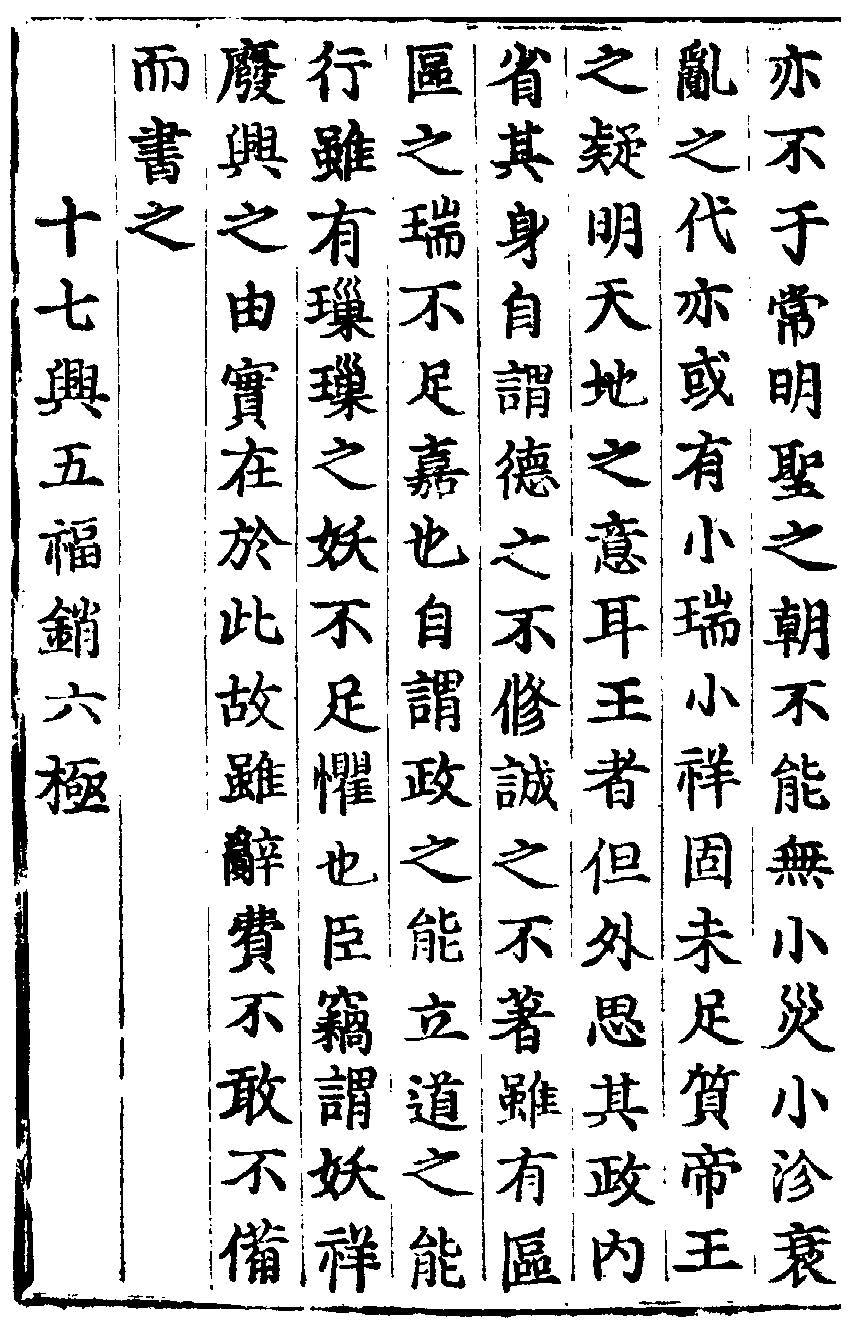 亦不于常明聖之朝不能無小災小沴衰
亂之代亦或有小瑞小祥固未足質帝王
之疑明天地之意耳王者但外思其政內
省其身自謂德之不修誠之不著雖有區
區之瑞不足嘉也自謂政之能立道之能
行雖有璅璅之妖不足懼也臣竊謂妖祥
廢興之由實在於此故雖辭費不敢不備
而書之
十七興五福銷六極